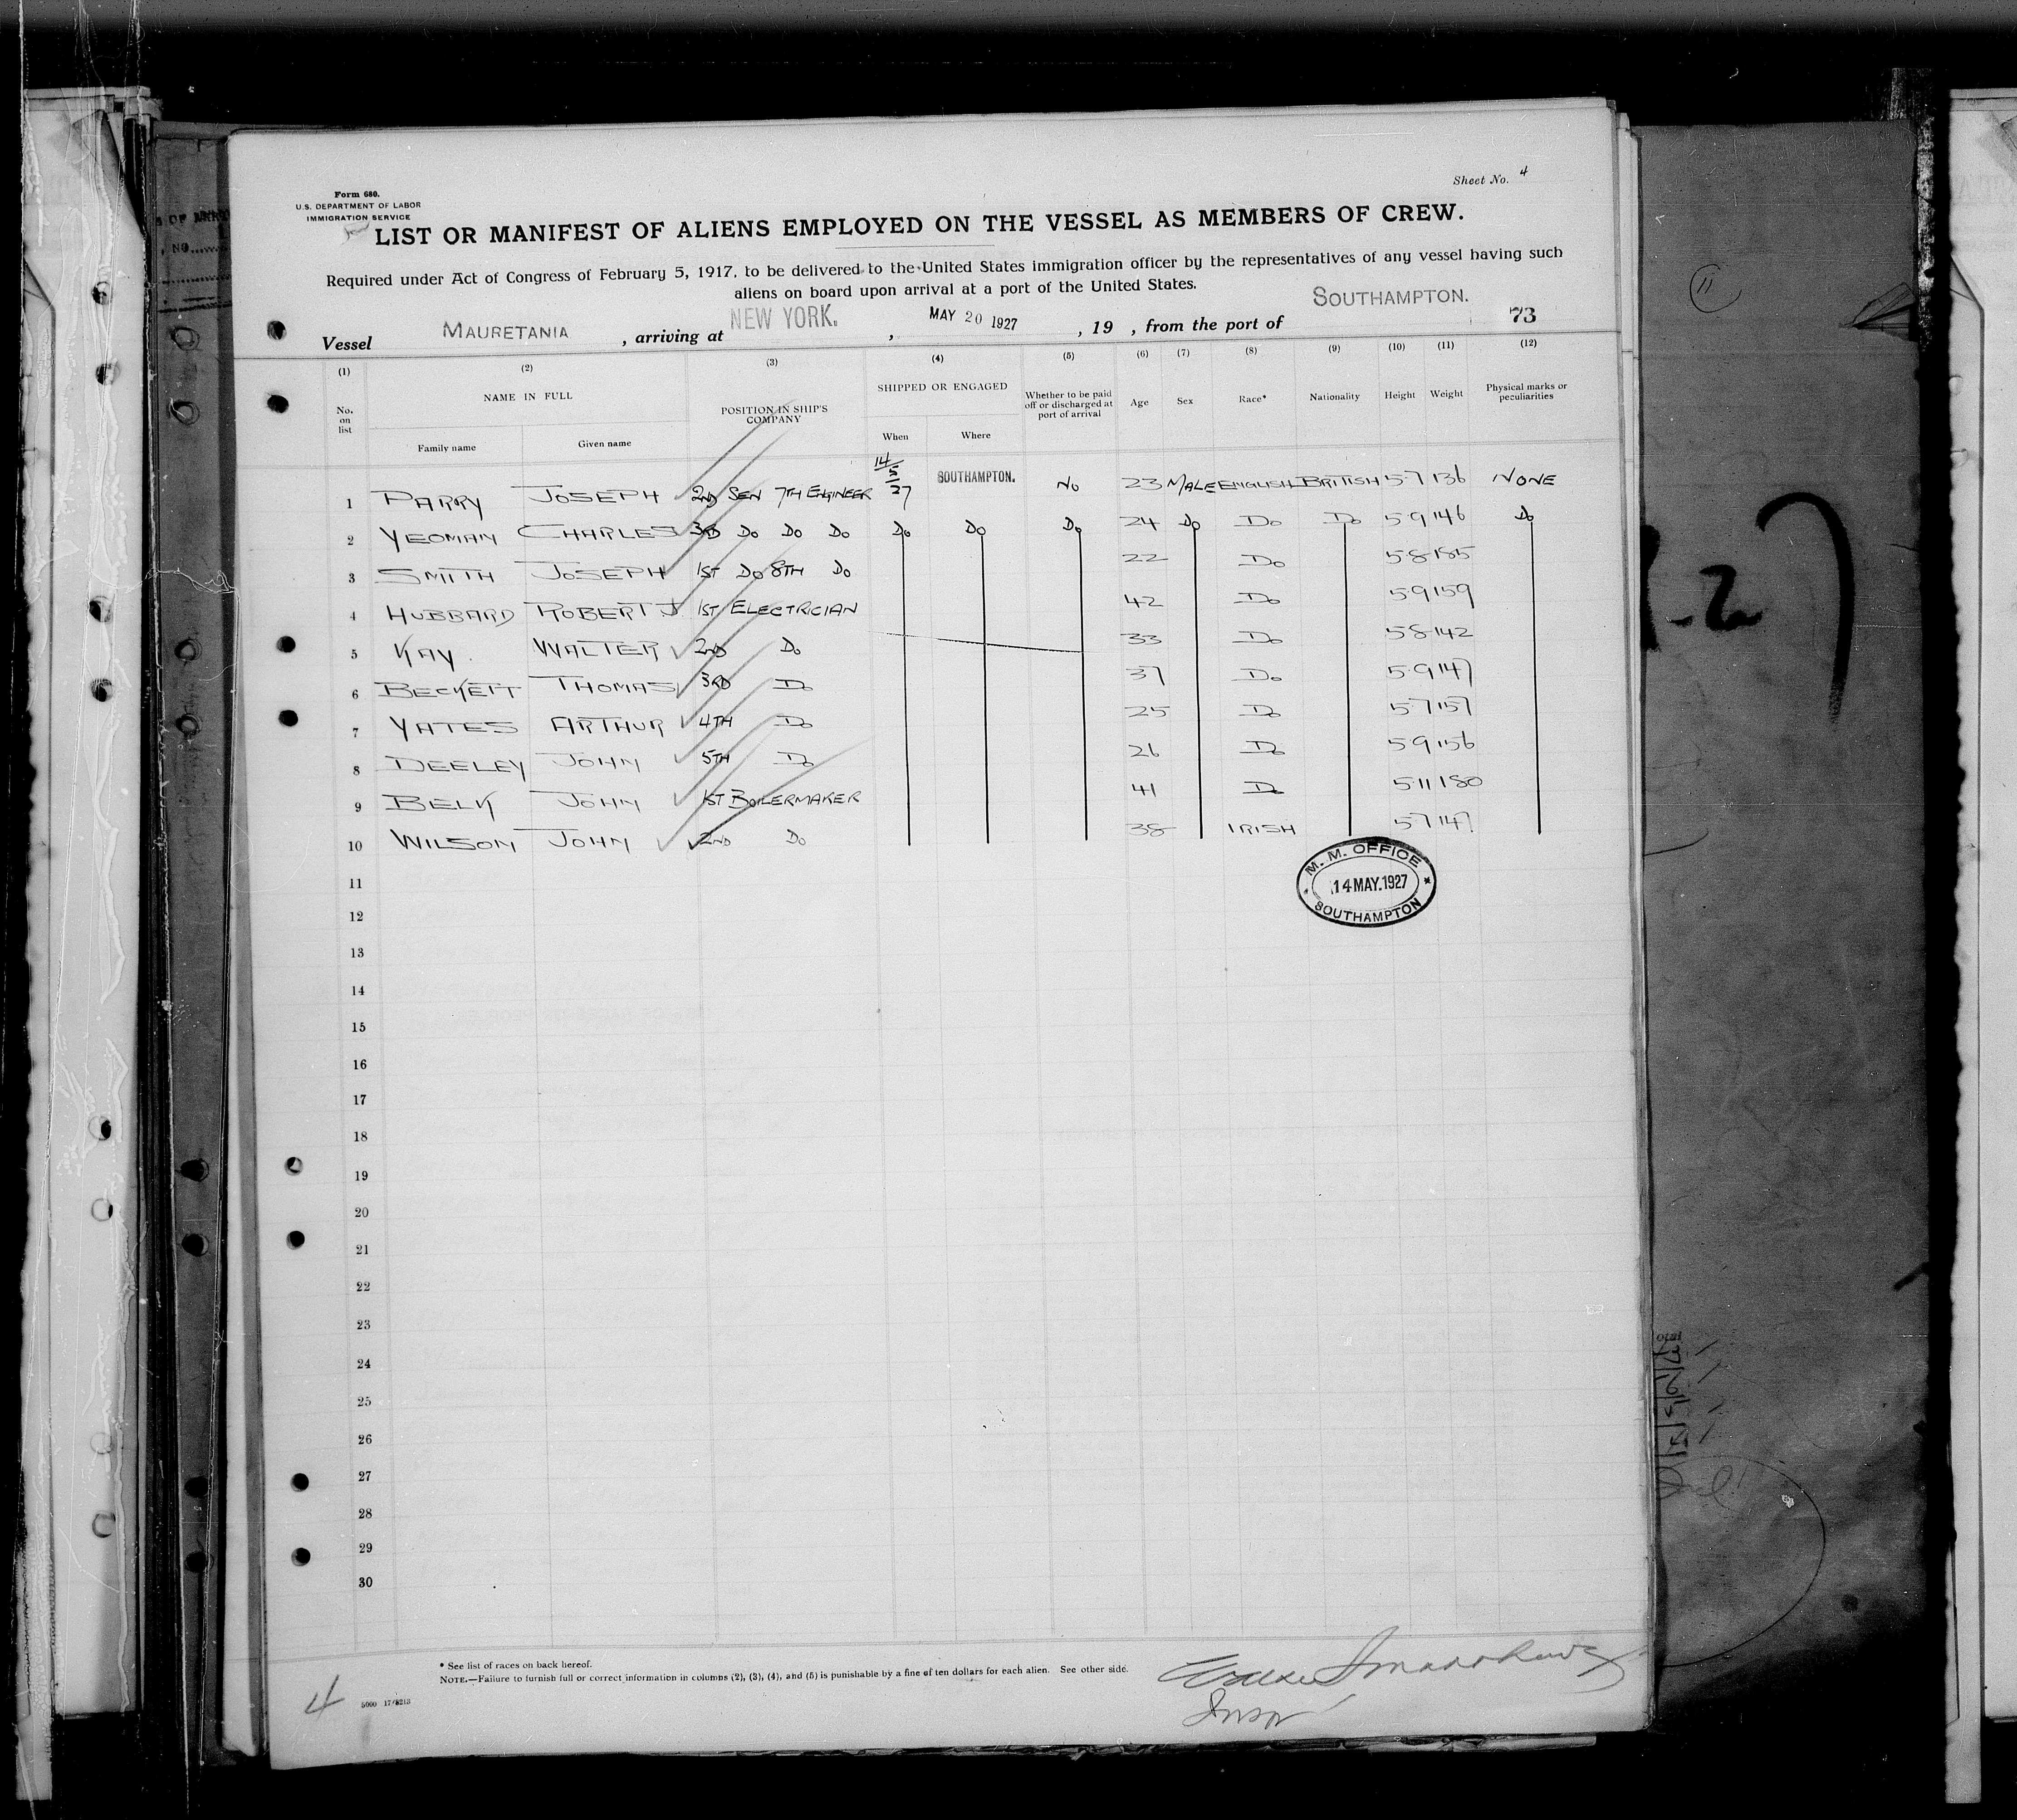 Sheet No. 4
Form 680.
U.S. DEPARTMENT OF LABOR
IMMIGRATION SERVICE
LIST OR MANIFEST OF ALIENS EMPLOYED ON THE VESSEL AS MEMBERS OF CREW.
Required under Act of Congress of February 5, 1917, to be delivered to the United States immigration officer by the representatives of any vessel having such
aliens on board upon arrival at a port of the United States.
Vessel MAURETANIA, arriving at NEW YORK., MAY 20 1927, 19 , from the port of SOUTHAMPTON. 73
(1) (2) (3) (4) (5) (6) (7) (8) (9) (10) (11) (12)
No. on list NAME IN FULL POSITION IN SHIP'S COMPANY SHIPPED OR ENGAGED Whether to be paid off or discharged at port of arrival Age Sex Race* Nationality Height Weight Physical marks or peculiarities
Family name Given name When Where
1 PARRY JOSEPH 2ND SEN 7TH ENGINEER 14/5/27 SOUTHAMPTON. NO 23 MALE ENGLISH BRITISH 5-7 136 NONE
2 YEOMAN CHARLES 3RD DO DO DO DO DO DO 24 DO DO DO 5-9 146 DO
3 SMITH JOSEPH 1ST DO 8TH DO 22 DO 5-8 185
4 HUBBARD ROBERT J 1ST ELECTRICIAN 42 DO 5-9 159
5 KAY. WALTER 2ND DO 33 DO 5-8 142
6 BECKETT THOMAS 3RD DO 37 DO 5-9 147
7 YATES ARTHUR 4TH DO 25 DO 5-7 157
8 DEELEY JOHN 5TH DO 26 DO 5-9 156
9 BELK JOHN 1ST BOILERMAKER 41 DO 5-11 180
10 WILSON JOHN 2ND DO 38 IRISH 5-7 147
M. M. OFFICE
14 MAY. 1927
SOUTHAMPTON
11
12
13
14
15
16
17
18
19
20
21
22
23
24
25
26
27
28
29
30
* See list of races on back hereof.
NOTE.—Failure to furnish full or correct information in columns (2), (3), (4), and (5) is punishable by a fine of ten dollars for each alien. See other side.
4
11